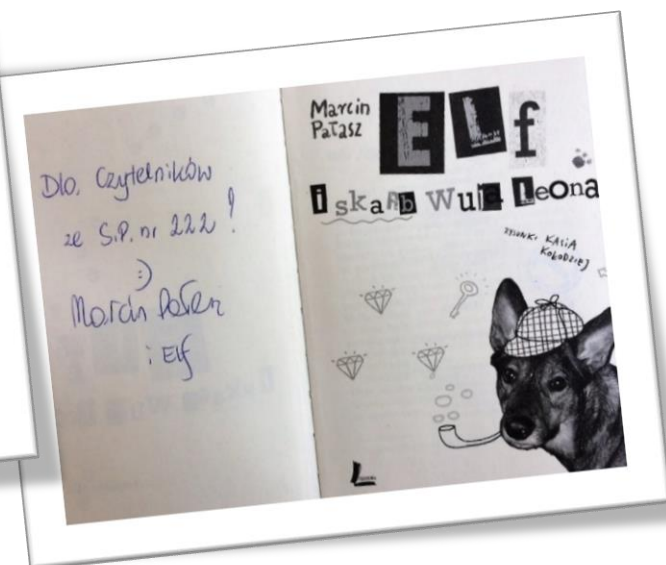 Dla Czytelników
ze S.P. nr 222!
:)
Marcin Pałasz
i Elf
Marcin
Pałasz
ELf
i skarb Wuja Leona
rysunki: KASIA
KOŁODZIEJ